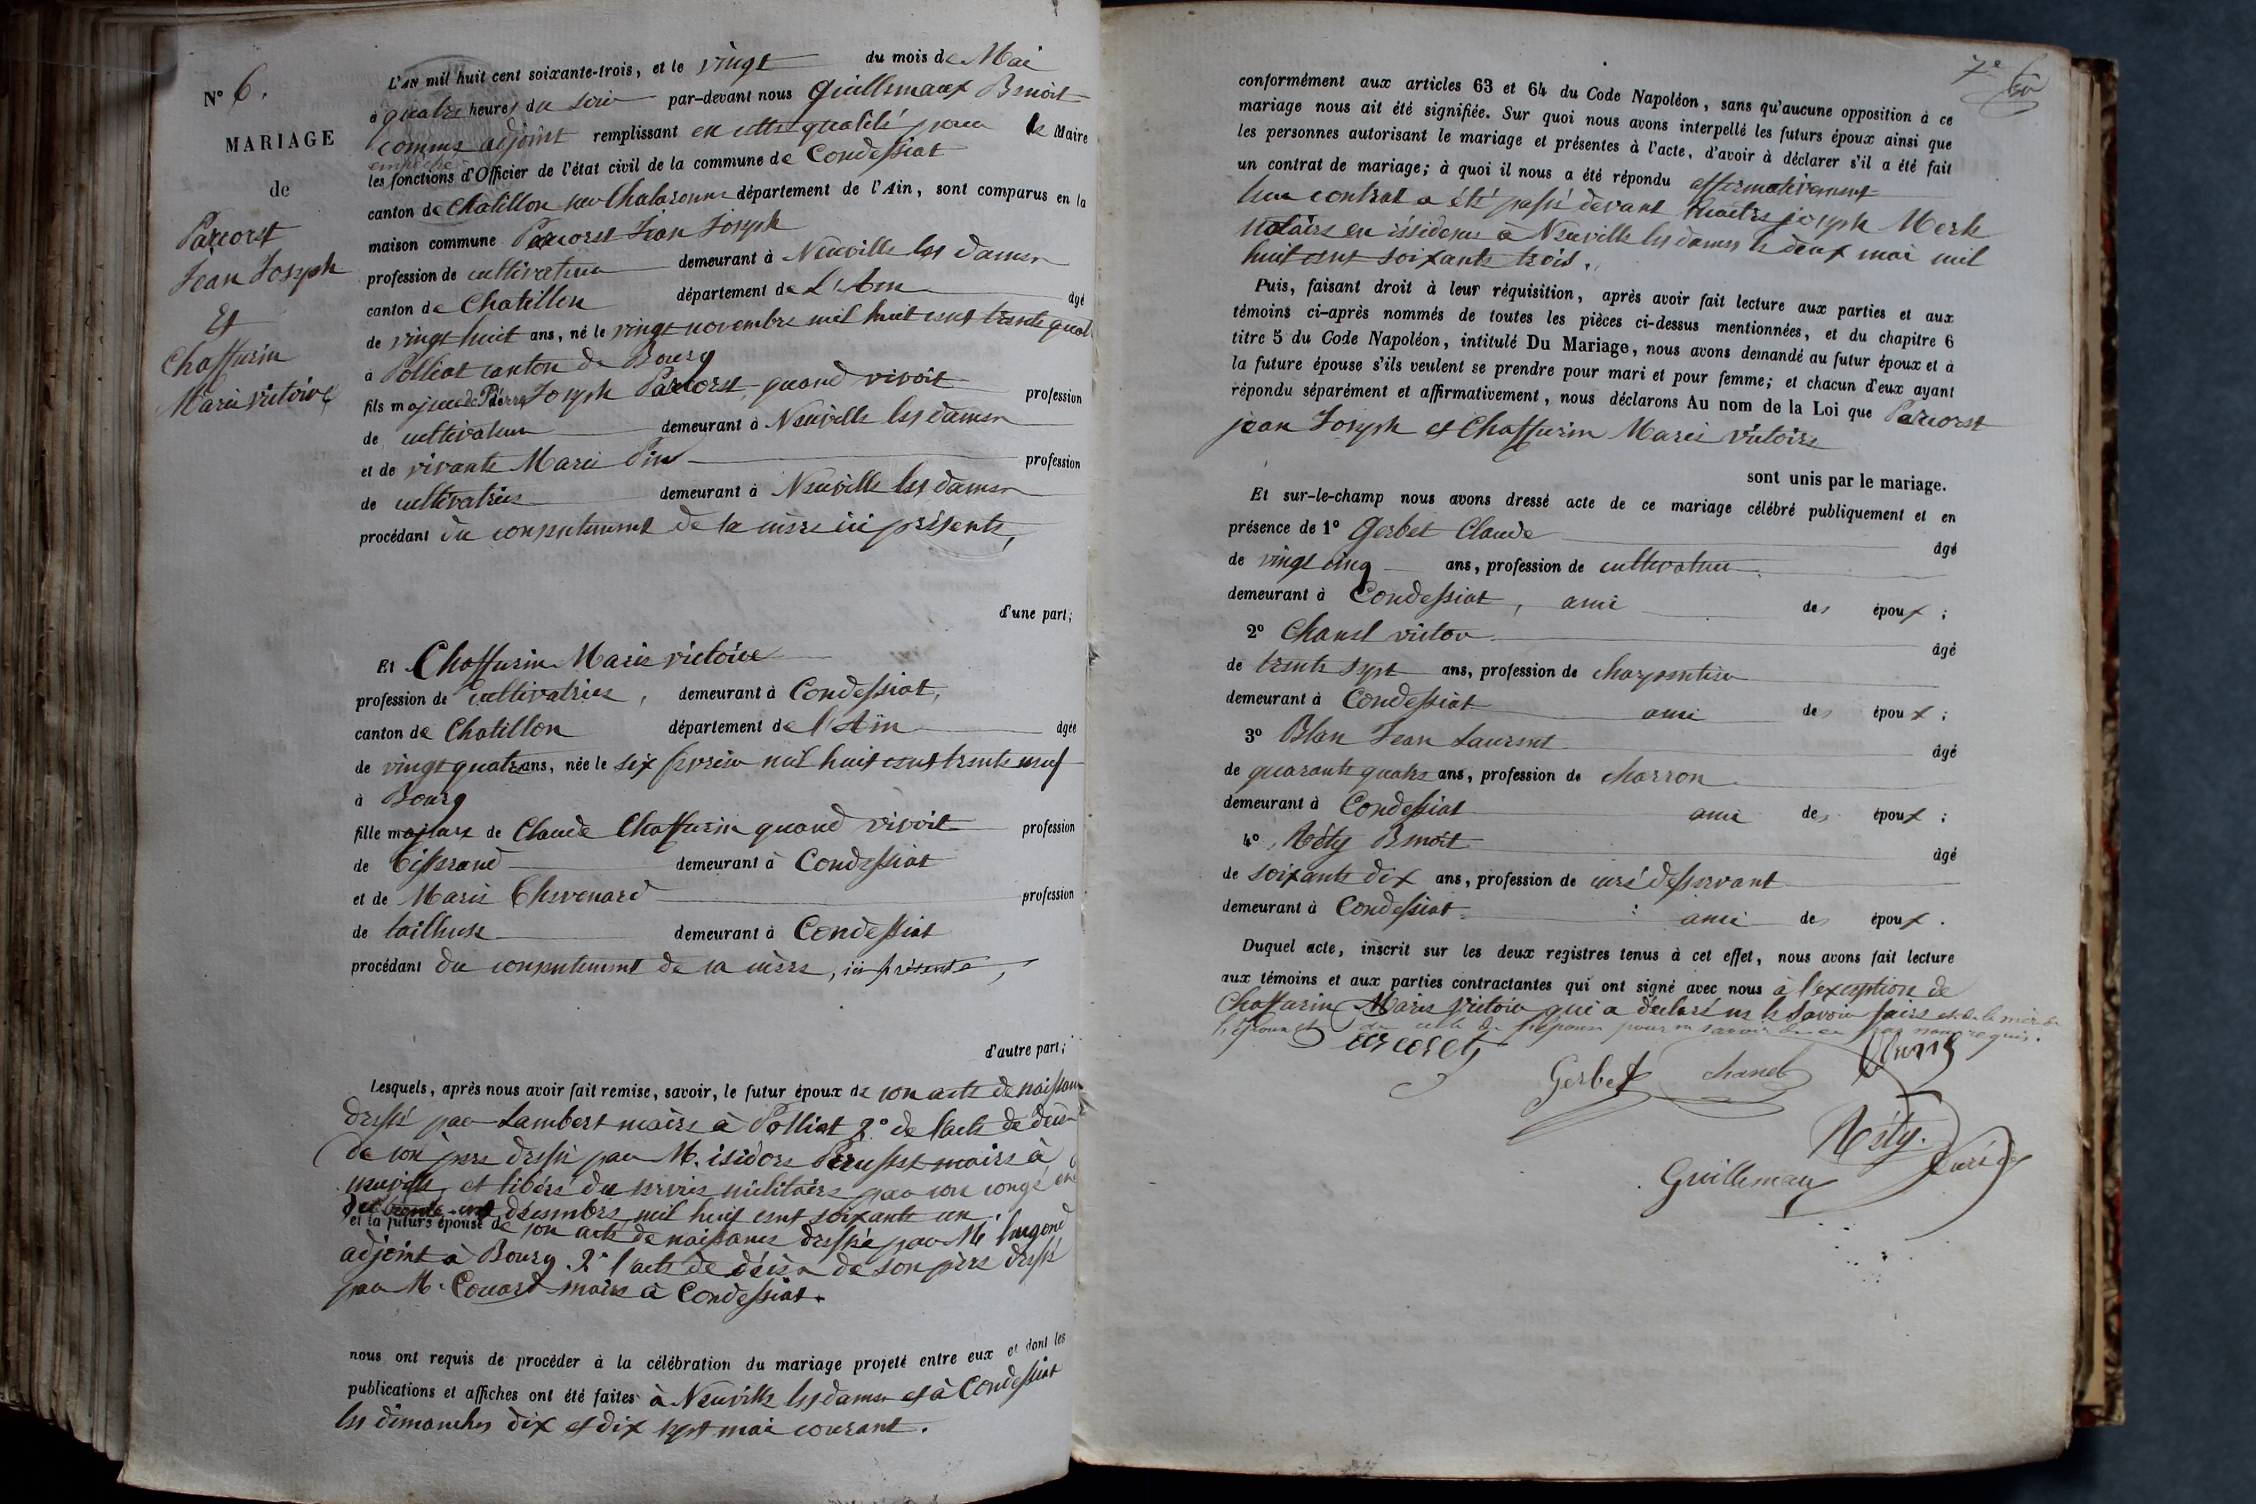 N° 6.
MARIAGE
de
Parcorst
Jean Joseph
Et
Chaffurin
Marie victoire
L'AN mil huit cent soixante-trois, et le vingt du mois de Mai
à quatre heures du soir par-devant nous Guillemaux Benoit
comme adjoint remplissant en cette qualité pour le Maire
empêché
les fonctions d'Officier de l'état civil de la commune de Condeissiat
canton de Chatillon sur Chalaronne département de l'Ain, sont comparus en la
maison commune Parcorst Jean Joseph
profession de cultivateur demeurant à Neuville les dames
canton de Chatillon département de L'Ain âgé
de vingt huit ans, né le vingt novembre mil huit cent trente quat
à Polliat canton de Bourg
fils majeur de Pierre Joseph Parcorst quand vivoit profession
de cultivateur demeurant à Neuville les dames
et de vivante Marie Pin profession
de cultivatrice demeurant à Neuville les dames
procédant du consentement de la mère ici présente,
d'une part;
Et Chaffurin Marie victoire
profession de cultivatrice, demeurant à Condeissiat,
canton de Chatillon département de l'Ain âgée
de vingt quatre ans, née le six février mil huit cent trente neuf
à Bourg
fille majeure de Claude Chaffurin quand vivoit profession
de tisserand demeurant à Condeissiat
et de Marie Chevenard profession
de tailleuse demeurant à Condeissiat
procédant du consentement de sa mère, ici présente,
d'autre part;
Lesquels, après nous avoir fait remise, savoir, le futur époux de son acte de naissan
dressé par Lambert maire à Polliat 2° de l'acte de décès
de son père dressé par M. isidore Perusset maire à
neuville et libéré du service militaire par son congé en
décembre mil huit cent soixante un
et la future épouse de son acte de naissance dressé par M
adjoint à Bourg. 2° l'acte de décès de son père dressé
par M. Couard maire à Condeissiat.
nous ont requis de procéder à la célébration du mariage projeté entre eux et dont les
publications et affiches ont été faites à Neuville les dames et à Condeissiat
les dimanches dix et dix sept mai courant.
conformément aux articles 63 et 64 du Code Napoléon, sans qu'aucune opposition à ce
mariage nous ait été signifiée. Sur quoi nous avons interpellé les futurs époux ainsi que
les personnes autorisant le mariage et présentes à l'acte, d'avoir à déclarer s'il a été fait
un contrat de mariage; à quoi il nous a été répondu affirmativement
leur contrat a été passé devant maître joseph Merle
notaire en résidence à Neuville les dames le deux mai mil
huit cent soixante trois.
Puis, faisant droit à leur réquisition, après avoir fait lecture aux parties et aux
témoins ci-après nommés de toutes les pièces ci-dessus mentionnées, et du chapitre 6
titre 5 du Code Napoléon, intitulé Du Mariage, nous avons demandé au futur époux et à
la future épouse s'ils veulent se prendre pour mari et pour femme; et chacun d'eux ayant
répondu séparément et affirmativement, nous déclarons Au nom de la Loi que Parcorst
jean Joseph et Chaffurin Marie victoire
sont unis par le mariage.
Et sur-le-champ nous avons dressé acte de ce mariage célébré publiquement et en
présence de 1° Gerbet Claude âgé
de vingt cinq ans, profession de cultivateur
demeurant à Condeissiat, ami des époux;
2° Chanel victor âgé
de trente sept ans, profession de charpentier
demeurant à Condeissiat ami des époux;
3° Blan Jean Laurent âgé
de quarante quatre ans, profession de charron
demeurant à Condeissiat ami des époux;
4° Néty Benoit âgé
de soixante dix ans, profession de curé desservant
demeurant à Condeissiat ami des époux.
Duquel acte, inscrit sur les deux registres tenus à cet effet, nous avons fait lecture
aux témoins et aux parties contractantes qui ont signé avec nous à l'exception de
Chaffurin Marie Victoire qui a déclaré ne le savoir faire et de la mère de
l'époux et de celle de l'épouse pour ne savoir de ce requis.
Gerbet Chanel
Néty. Curé
Guillemaux